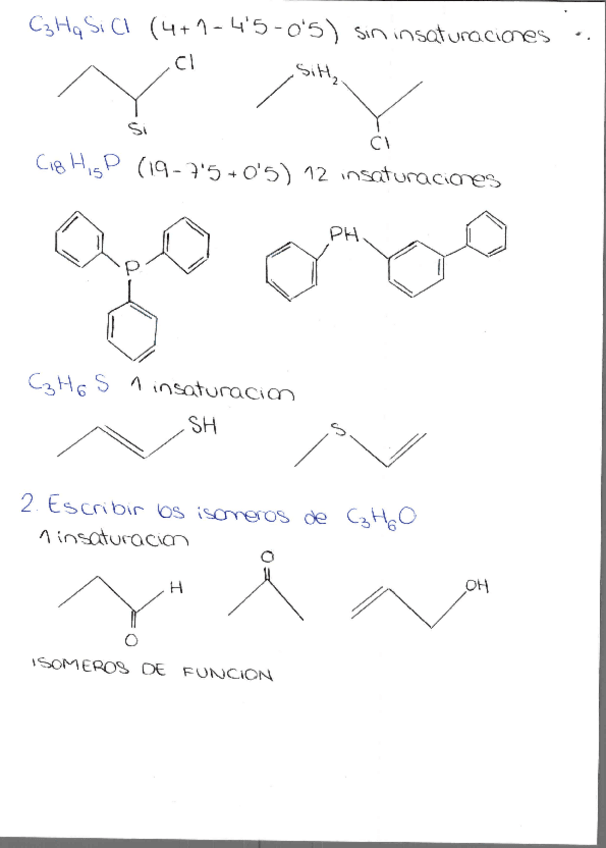 C3H9SiCl (4+1-4'5-0'5) sin insaturaciones
Cl
Si
SiH2
Cl
C18H15P (19-7'5+0'5) 12 insaturaciones
P
PH
C3H6S 1 insaturacion
SH
S
2. Escribir los isomeros de C3H6O
1 insaturacion
H
O
O
OH
ISOMEROS DE FUNCION